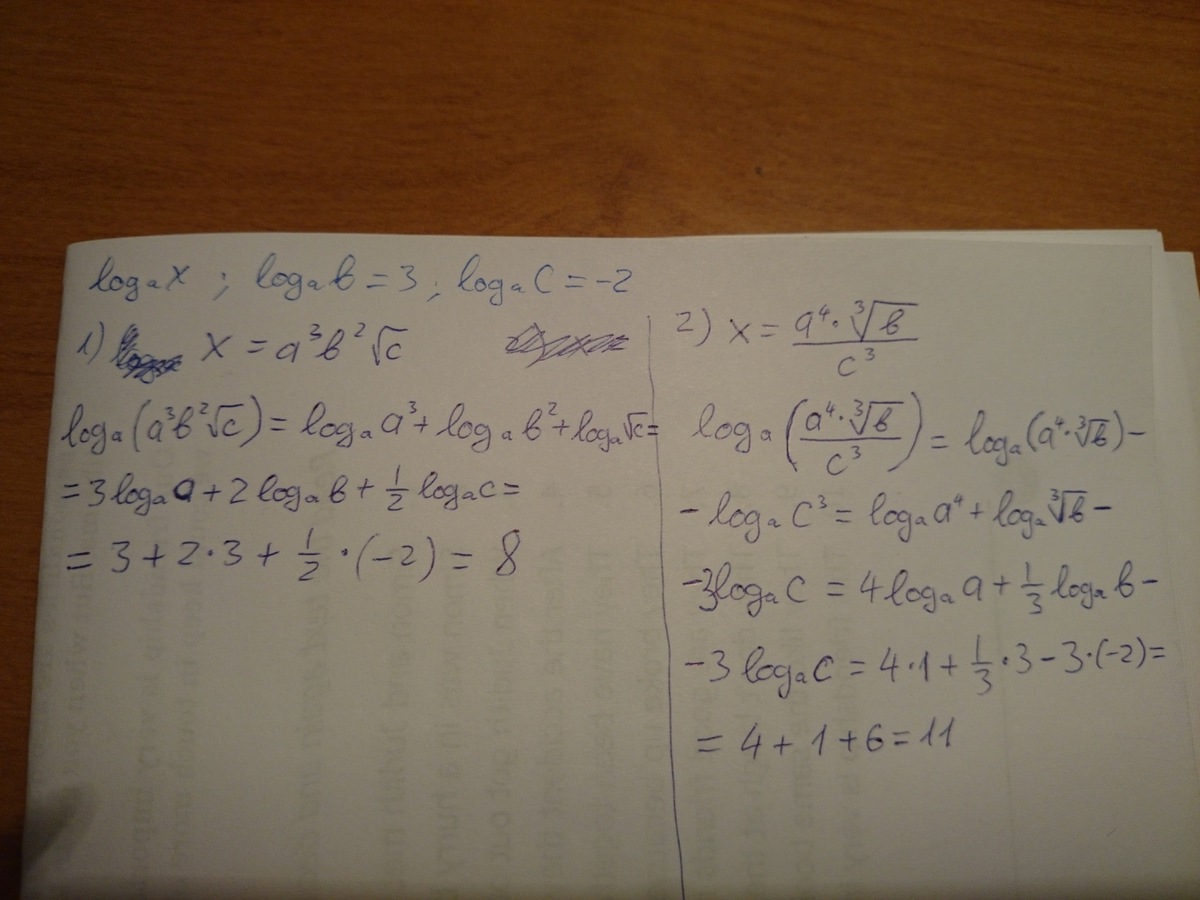 logₐx ; logₐb = 3 ; logₐc = -2
1) x = a³b²√c
logₐ(a³b²√c) = logₐa³ + logₐb² + logₐ√c =
= 3logₐa + 2logₐb + 1/2 logₐc =
= 3 + 2·3 + 1/2 · (-2) = 8
2) x = (a⁴·∛b)/c³
logₐ((a⁴·∛b)/c³) = logₐ(a⁴·∛b) -
- logₐc³ = logₐa⁴ + logₐ∛b -
-3logₐc = 4logₐa + 1/3 logₐb -
-3logₐc = 4·1 + 1/3·3 - 3·(-2) =
= 4 + 1 + 6 = 11